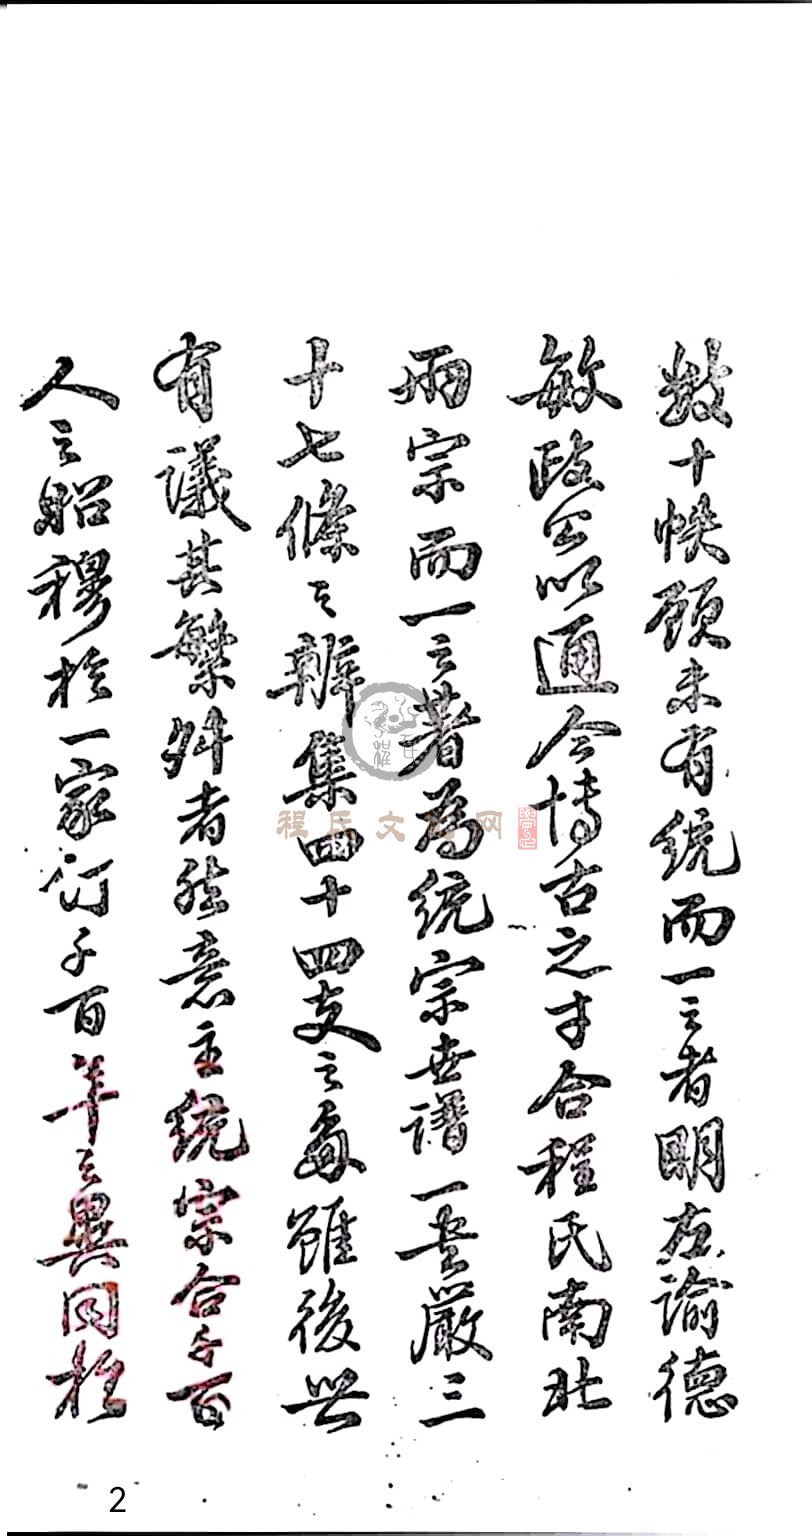 數十帙顧未有統而一之者明左諭德
敏政公以通今博古之才合程氏南北
兩宗而一之著為統宗世譜一書嚴三
十七條之辨集四十四支之
雖後
有議其繁舛者然意主統宗合千百
人之昭穆於一家訂千百年之異同於
程氏文化网
2